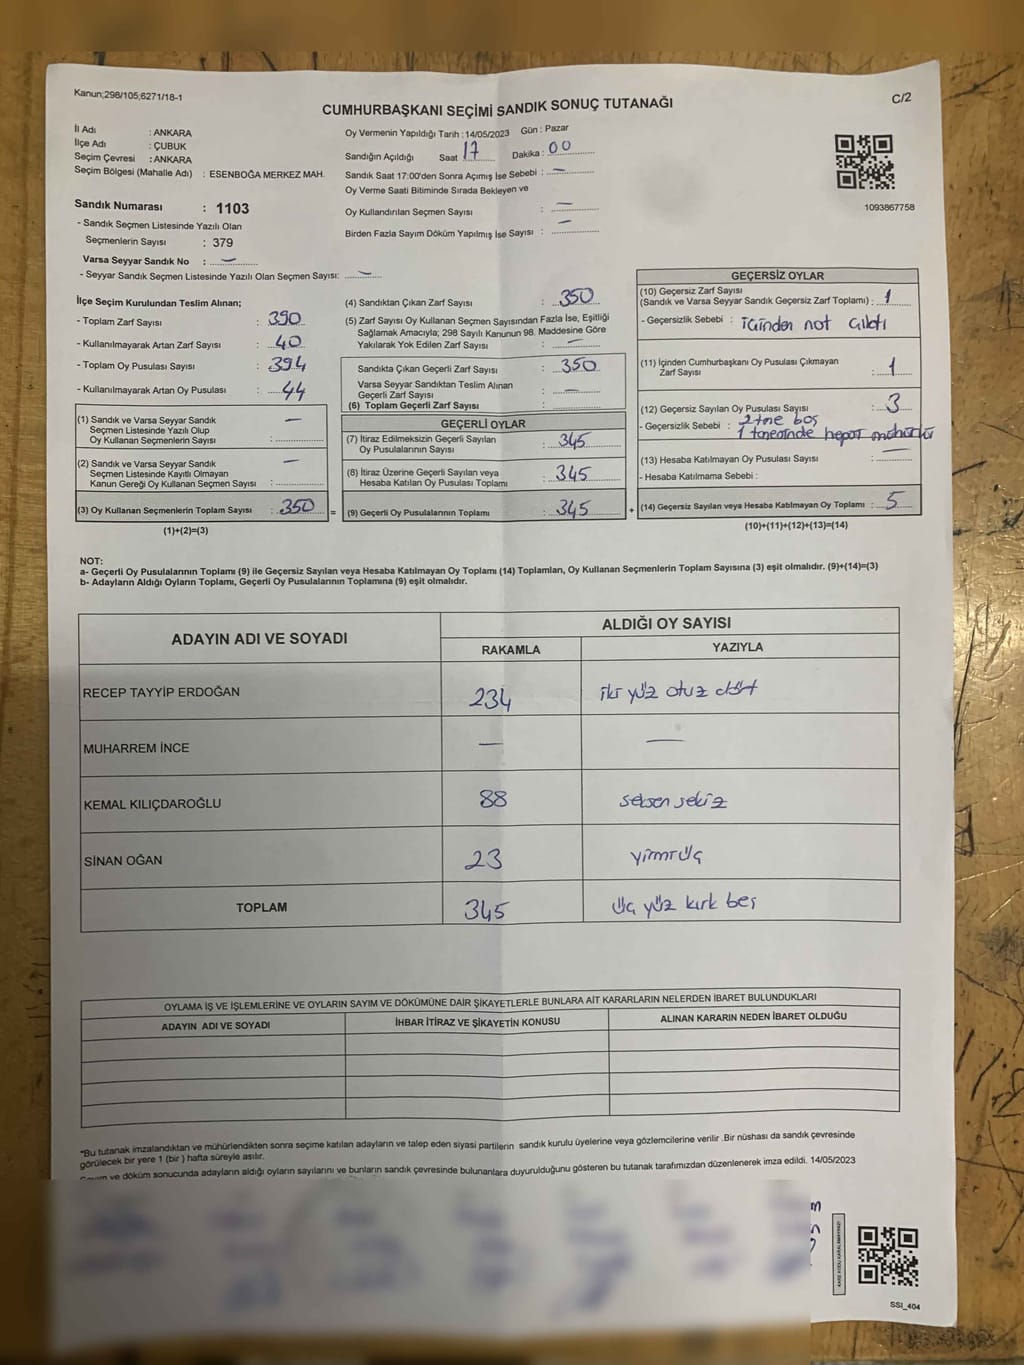 Kanun;298/105;6271/18-1
C/2
CUMHURBAŞKANI SEÇİMİ SANDIK SONUÇ TUTANAĞI
İl Adı : ANKARA
İlçe Adı : ÇUBUK
Seçim Çevresi : ANKARA
Seçim Bölgesi (Mahalle Adı) : ESENBOĞA MERKEZ MAH.
Sandık Numarası : 1103
- Sandık Seçmen Listesinde Yazılı Olan
Seçmenlerin Sayısı : 379
Varsa Seyyar Sandık No : —
- Seyyar Sandık Seçmen Listesinde Yazılı Olan Seçmen Sayısı: —
Oy Vermenin Yapıldığı Tarih : 14/05/2023 Gün : Pazar
Sandığın Açıldığı Saat 17 Dakika : 00
Sandık Saat 17:00'den Sonra Açımış İse Sebebi : —
Oy Verme Saati Bitiminde Sırada Bekleyen ve
Oy Kullandırılan Seçmen Sayısı : —
Birden Fazla Sayım Döküm Yapılmış İse Sayısı : —
1093867758
İlçe Seçim Kurulundan Teslim Alınan;
- Toplam Zarf Sayısı : 390
- Kullanılmayarak Artan Zarf Sayısı : 40
- Toplam Oy Pusulası Sayısı : 394
- Kullanılmayarak Artan Oy Pusulası : 44
(1) Sandık ve Varsa Seyyar Sandık —
Seçmen Listesinde Yazılı Olup
Oy Kullanan Seçmenlerin Sayısı :
(2) Sandık ve Varsa Seyyar Sandık —
Seçmen Listesinde Kayıtlı Olmayan
Kanun Gereği Oy Kullanan Seçmen Sayısı :
(3) Oy Kullanan Seçmenlerin Toplam Sayısı : 350 =
(1)+(2)=(3)
(4) Sandıktan Çıkan Zarf Sayısı : 350
(5) Zarf Sayısı Oy Kullanan Seçmen Sayısından Fazla İse, Eşitliği
Sağlamak Amacıyla; 298 Sayılı Kanunun 98. Maddesine Göre
Yakılarak Yok Edilen Zarf Sayısı : —
Sandıkta Çıkan Geçerli Zarf Sayısı : 350
Varsa Seyyar Sandıktan Teslim Alınan
Geçerli Zarf Sayısı : —
(6) Toplam Geçerli Zarf Sayısı :
GEÇERLİ OYLAR
(7) İtiraz Edilmeksizin Geçerli Sayılan
Oy Pusulalarının Sayısı : 345
(8) İtiraz Üzerine Geçerli Sayılan veya
Hesaba Katılan Oy Pusulası Toplamı : 345
(9) Geçerli Oy Pusulalarının Toplamı : 345 +
GEÇERSİZ OYLAR
(10) Geçersiz Zarf Sayısı
(Sandık ve Varsa Seyyar Sandık Geçersiz Zarf Toplamı) : 1
- Geçersizlik Sebebi : içinden not çıktı
(11) İçinden Cumhurbaşkanı Oy Pusulası Çıkmayan
Zarf Sayısı : 1
(12) Geçersiz Sayılan Oy Pusulası Sayısı : 3
- Geçersizlik Sebebi : 2 tne boş
1 tanesinde hepsi mühürlü
(13) Hesaba Katılmayan Oy Pusulası Sayısı : —
- Hesaba Katılmama Sebebi :
(14) Geçersiz Sayılan veya Hesaba Katılmayan Oy Toplamı : 5
(10)+(11)+(12)+(13)=(14)
NOT:
a- Geçerli Oy Pusulalarının Toplamı (9) ile Geçersiz Sayılan veya Hesaba Katılmayan Oy Toplamı (14) Toplamları, Oy Kullanan Seçmenlerin Toplam Sayısına (3) eşit olmalıdır. (9)+(14)=(3)
b- Adayların Aldığı Oyların Toplamı, Geçerli Oy Pusulalarının Toplamına (9) eşit olmalıdır.
ADAYIN ADI VE SOYADI
ALDIĞI OY SAYISI
RAKAMLA YAZIYLA
RECEP TAYYİP ERDOĞAN 234 iki yüz otuz dört
MUHARREM İNCE — —
KEMAL KILIÇDAROĞLU 88 seksen sekiz
SİNAN OĞAN 23 yirmi üç
TOPLAM 345 üç yüz kırk beş
OYLAMA İŞ VE İŞLEMLERİNE VE OYLARIN SAYIM VE DÖKÜMÜNE DAİR ŞİKAYETLERLE BUNLARA AİT KARARLARIN NELERDEN İBARET BULUNDUKLARI
ADAYIN ADI VE SOYADI İHBAR İTİRAZ VE ŞİKAYETİN KONUSU ALINAN KARARIN NEDEN İBARET OLDUĞU
*Bu tutanak imzalandıktan ve mühürlendikten sonra seçime katılan adayların ve talep eden siyasi partilerin sandık kurulu üyelerine veya gözlemcilerine verilir .Bir nüshası da sandık çevresinde
görülecek bir yere 1 (bir ) hafta süreyle asılır.
ve döküm sonucunda adayların aldığı oyların sayılarını ve bunların sandık çevresinde bulunanlara duyurulduğunu gösteren bu tutanak tarafımızdan düzenlenerek imza edildi. 14/05/2023
SSI_404